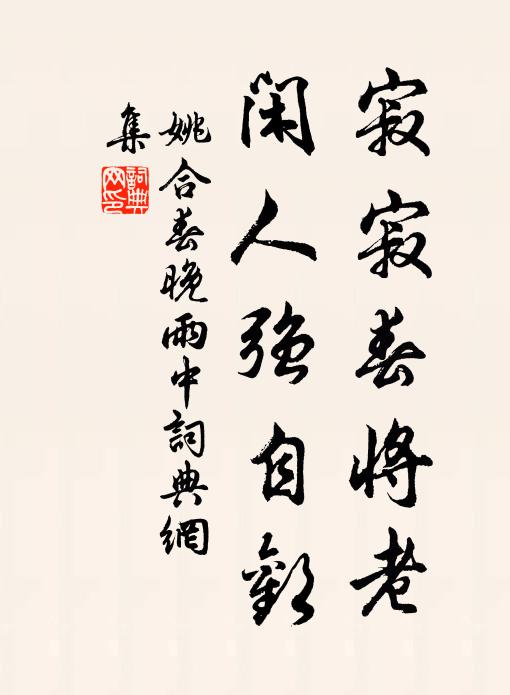 寂寂春將老
閑人強自歡
姚合春晚雨中詞典網
集
詞典
网印